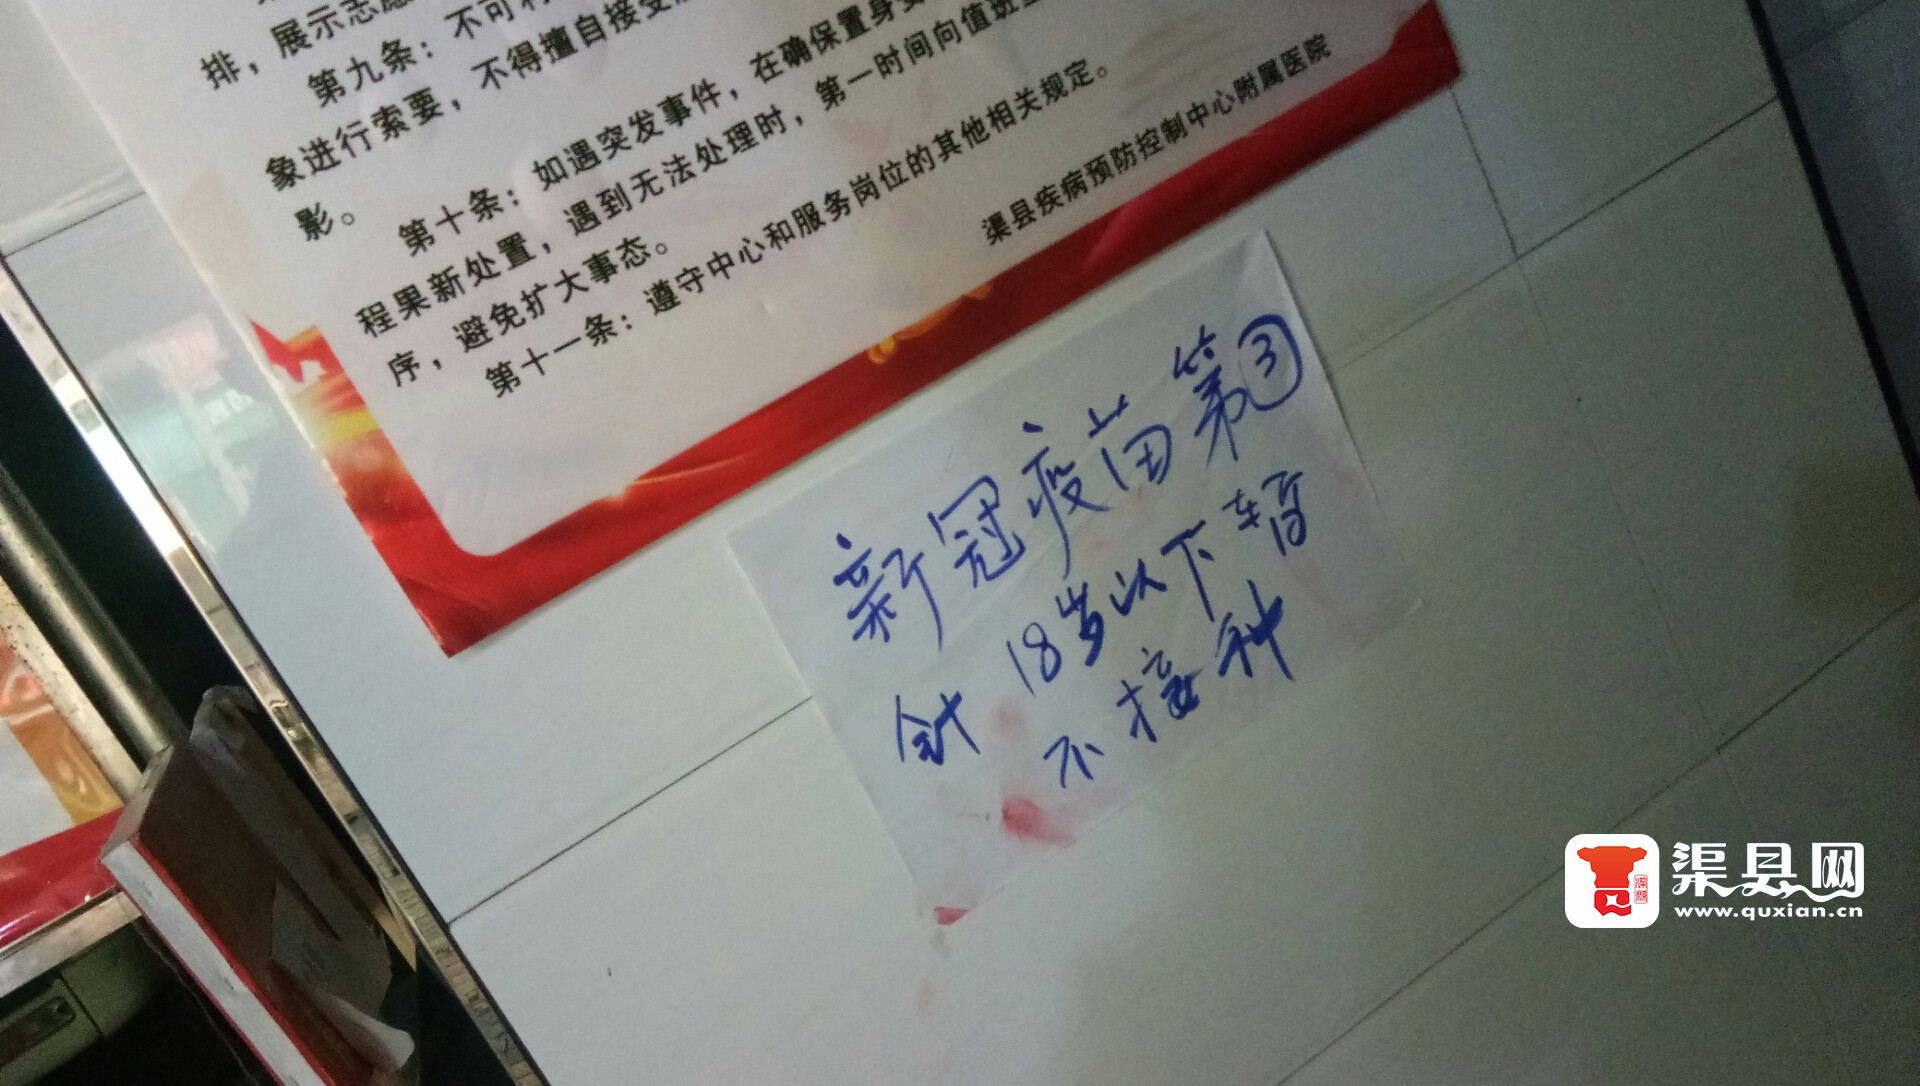 排，展示志愿
第九条：不可利
象进行索要，不得擅自接受
影。
第十条：如遇突发事件，在确保置身安
程果新处置，遇到无法处理时，第一时间向值班
序，避免扩大事态。
第十一条：遵守中心和服务岗位的其他相关规定。
渠县疾病预防控制中心附属医院
新冠疫苗第③
针 18岁以下暂
不接种
渠县网
www.quxian.cn